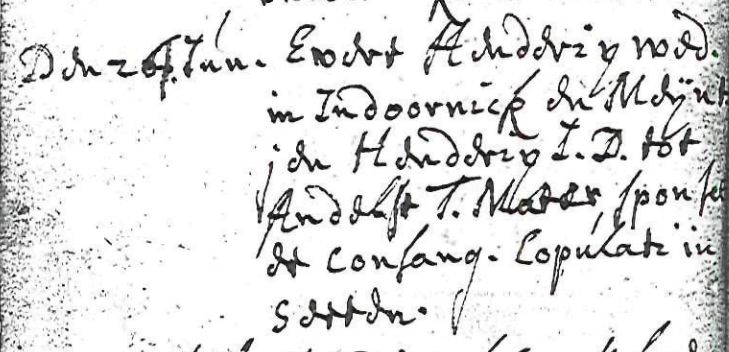 Den 26 Jun. Ewert Henderix wed.
in Indoornick en Meijnt
jen Henderix J. D. tot
Andelst T. Mater sponsae
et consang. Copulati in